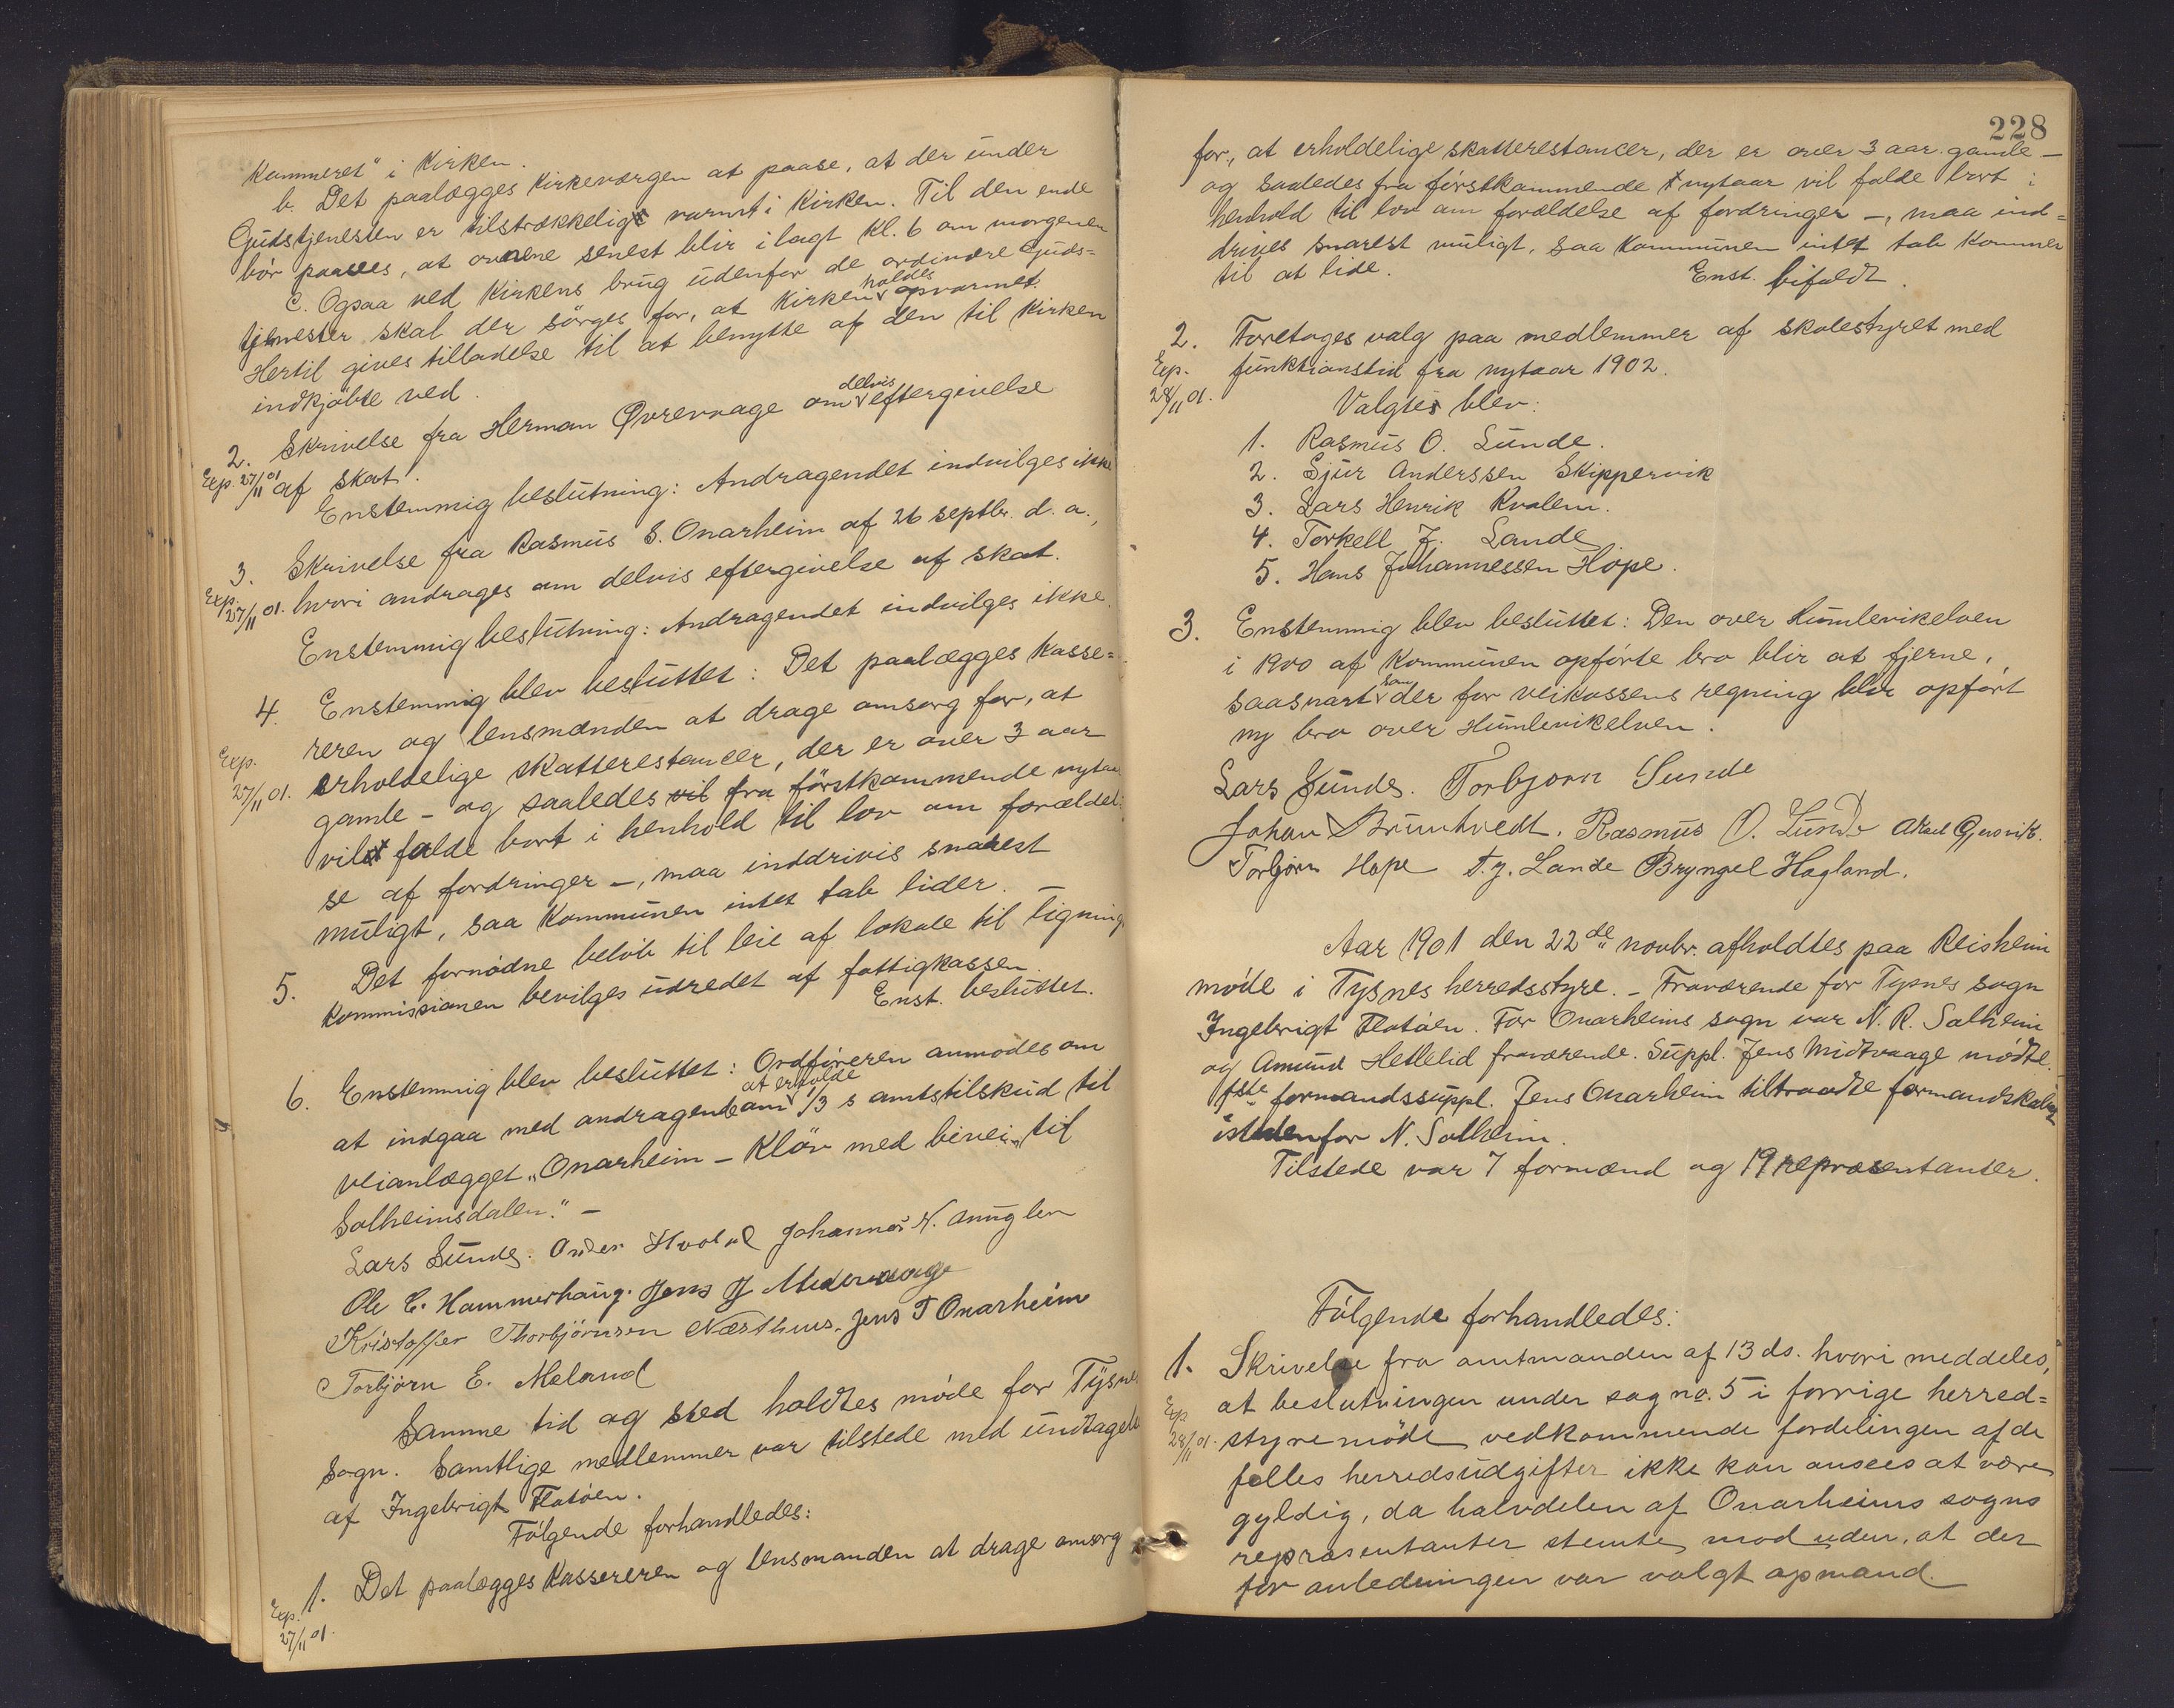 Kammeret" i Kirken.
b. Det paalægges Kirkeværgen at paase, at der under
Gudstjenesten er tilstrækkeligt varmt i Kirken. Til den ende
bör paasees, at ovnene senest blir ilagt Kl. 6 om morgenen
C. Ogsaa ved Kirkens brug udenfor de ordinære Guds=
tjenester skal der sörges for, at Kirken holdes opvarmet.
Hertil gives tilladelse til at benytte af den til Kirken
indkjöbte ved.
2. Skrivelse fra Herman Øvrevaage om delvis eftergivelse
Exp. 27/11 01 af skat.
Enstemmig beslutning: Andragendet indvilges ikke
3. Skrivelse fra Rasmus S. Onarheim af 26 septbr. d. a.,
Exp. 27/11 01. hvori andrages om delvis eftergivelse af skat.
Enstemmig beslutning: Andragendet indvilges ikke.
4. Enstemmig blev besluttet: Det paalægges Kasse=
reren og lensmanden at drage omsorg for, at
Exp. 27/11 01. erholdelige skatterestancer, der er over 3 aar
gamle - og saaledes vil fra förstkommende nytaar
vil falde bort i henhold til lov om forældel:
se af fordringer -, maa inddrivis snarest
muligt, saa Kommunen intet tab lider. -
5. Det fornødne beløb til leie af lokale til lignings
Kommissionen bevilges udredet af fattigkassen.
Enst. besluttet.
6. Enstemmig blev besluttet: Ordföreren anmodes om
at indgaa med andragende om at erholde 1/3 s amtstilskud til
veianlægget „Onarheim - Klöv med bivei „til
Solheimsdalen." -
Lars Sunde. Johannes N. Anuglen
Ole C. Hammerhaug. Jens J Midtvaage
Kristoffer Thorbjörnsen Næsthuus. Jens T Onarheim
Torbjörn E. Meland
Samme tid og sted holdtes møde for Tysnes
Sogn. Samtlige medlemmer var tilstede med undtagelse
af Ingebrigt Flatöen.
Fölgende forhandledes:
1. Det paalægges Kassereren og lensmanden at drage omsorg
Exp. 27/11 01.
228
for, at erholdelige skatterestancer, der er over 3 aar gamle -
og saaledes fra förstkommende nytaar vil falde bort i
henhold til lov om forældelse af fordringer -, maa ind=
drives snarest muligt, saa Kommunen intet tab kommer
til at lide. Enst. bifaldt.
2. Foretoges valg paa medlemmer af skolestyret med
Exp. 28/11 01. funktionstid fra nytaar 1902.
Valgtes blev:
1. Rasmus O. Lunde.
2. Sjur Anderssen Skippervik
3. Lars Henrik Kvalem.
4. Torkell J. Lande
5. Hans Johannessen Hope.
3. Enstemmig blev besluttet: Den over Humlevikelven
i 1900 af Kommunen opførte bro blir at fjerne,
saasnart som der for veikassens regning blir opført
ny bro over Humlevikelven.
Lars Sunde. Torbjorn Sunde
Johan Bruntvedt. Rasmus O. Lunde Aksel Gjersvik.
Torbjörn Hope T. J. Lande Bryngel Hagland.
Aar 1901 den 22de novbr. afholdtes paa Reisheim
møde i Tysnes herredsstyre. - Fraværende for Tysnes sogn
Ingebrigt Flatöen. For Onarheims sogn var N. R. Solheim
og Amund Hetlelid fraværende. Suppl. Jens Midtvaage mødte.
1ste formandssuppl. Jens Onarheim tiltraadte formandskabet
istedenfor N. Solheim.
Tilstede var 7 formænd og 19 repræsentanter.
Fölgende forhandledes:
1. Skrivelse fra amtmanden af 13 ds. hvori meddeles,
at beslutningen under sag no. 5 i forrige herred=
Exp 28/11 01. styremöde vedkommende fordelingen af de
fælles herredsudgifter ikke kan ansees at være
gyldig, da halvdelen af Onarheims sogns
repræsentanter stemte mod uden, at der
for anledningen var valgt opmand.